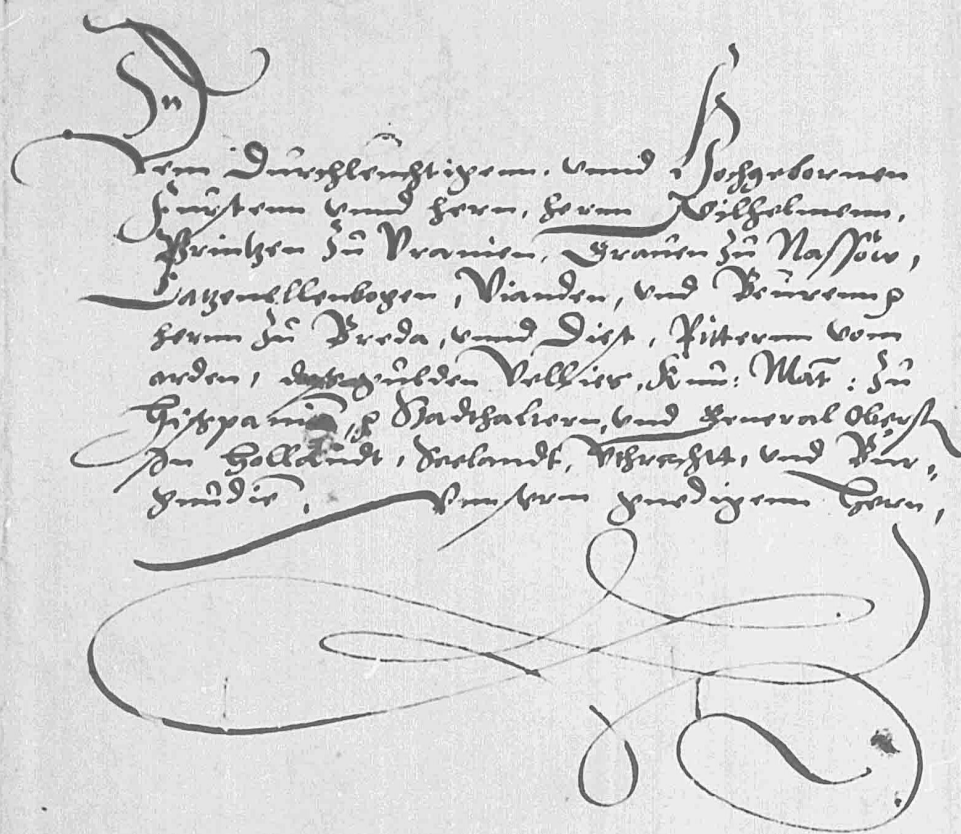 Dem Durchleuchtigenn, vnnd Hochgebornen
Furstenn vnnd hern, hernn Wilhelmenn,
Printzen zu Vranien, Grauen zu Nassow,
Catzenellenbogen, Vianden, vnd Beurenn
hernn zu Breda, vnnd Diest, Ritternn vom
orden, gulden Vellies, Kun: Mat: zu
Hispanie, Stadthaltern, vnd General Oberst
In Hollandt, Seelandt, Vtrechtt, vnd Bur-
gundie, Vnnsern gnedigenn Hern,